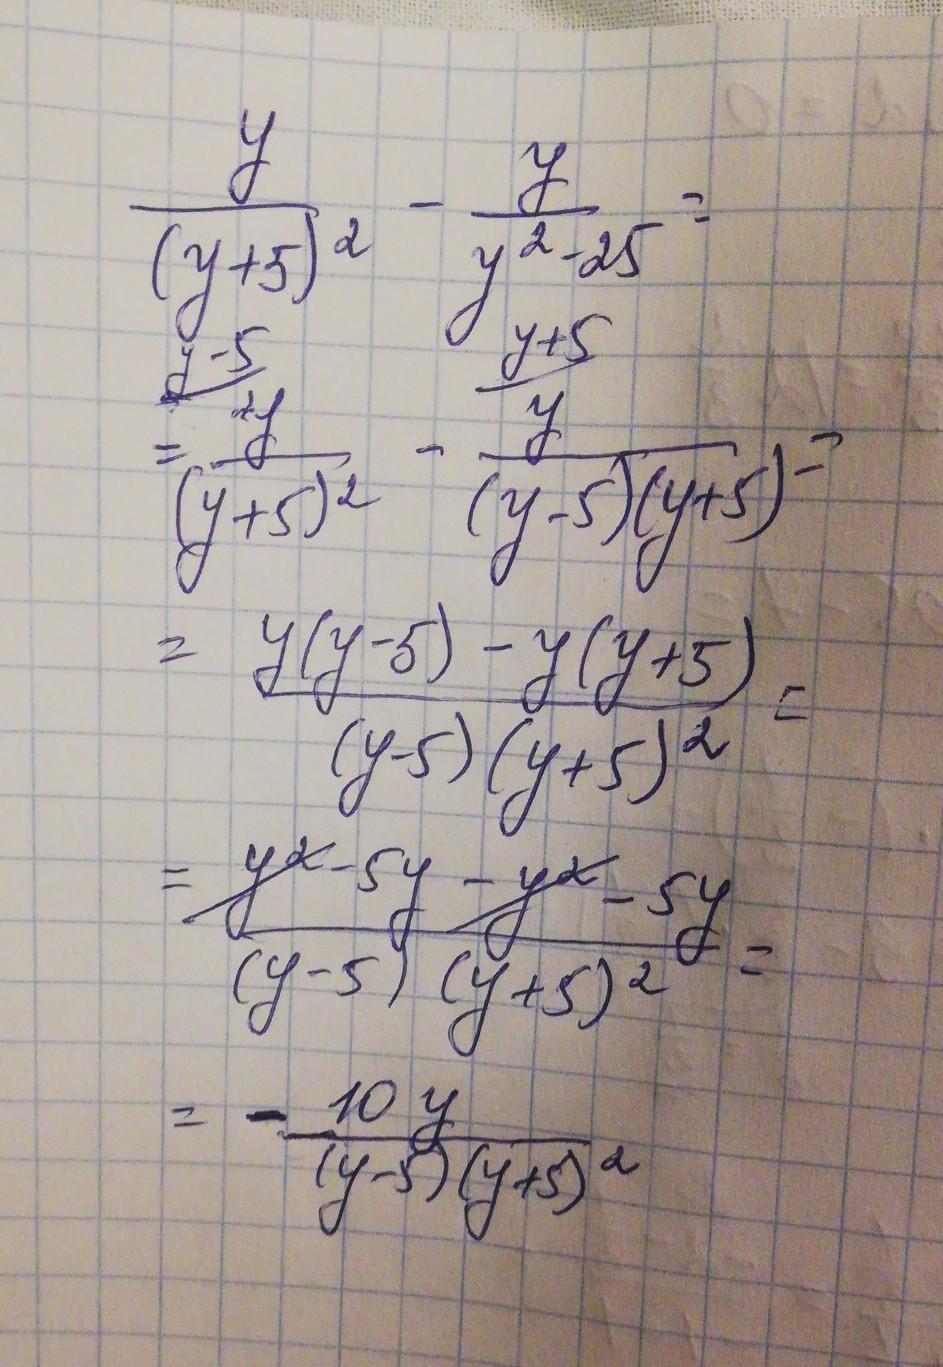 y/(y+5)² - y/(y²-25) =
y-5 y+5
= y/(y+5)² - y/((y-5)(y+5)) =
= (y(y-5) - y(y+5))/((y-5)(y+5)²) =
= (y² - 5y - y² - 5y)/((y-5)(y+5)²) =
= - 10y/((y-5)(y+5)²)